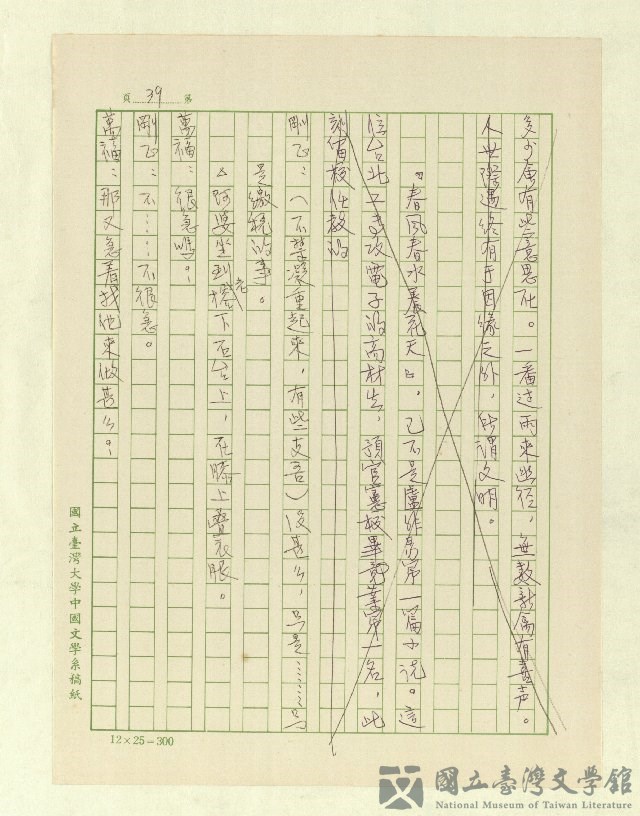 頁 39 第
多少會有些意思在。一番过雨來幽徑，無數新禽有喜声。
人世際遇終有于因緣之外，所謂文明。
『春風春水暮花天』。已不是盧作第一篇小说。這
位台北工專改電子的高材生，預官憲校畢業第一名，此
刻侑校任教的
剛正：（不禁凝重起來，有些支吾）没甚么，只是……只
是繳稅的事。
△阿婆坐到老榕下石台上，在膝上疊衣服。
萬福：很急嗎？
剛正：不……不很急。
萬福：那又急着找他來做甚么？
國立臺灣大學中國文學系稿紙
12×25=300
國立臺灣文學館
National Museum of Taiwan Literature